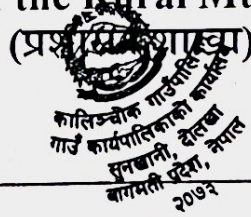 the Rural Mu
(प्रशासन शाखा)
कालिञ्चोक गाउँपालिका
गाउँ कार्यपालिकाको कार्यालय
सुनखानी, दोलखा
बागमती प्रदेश, नेपाल
२०७३